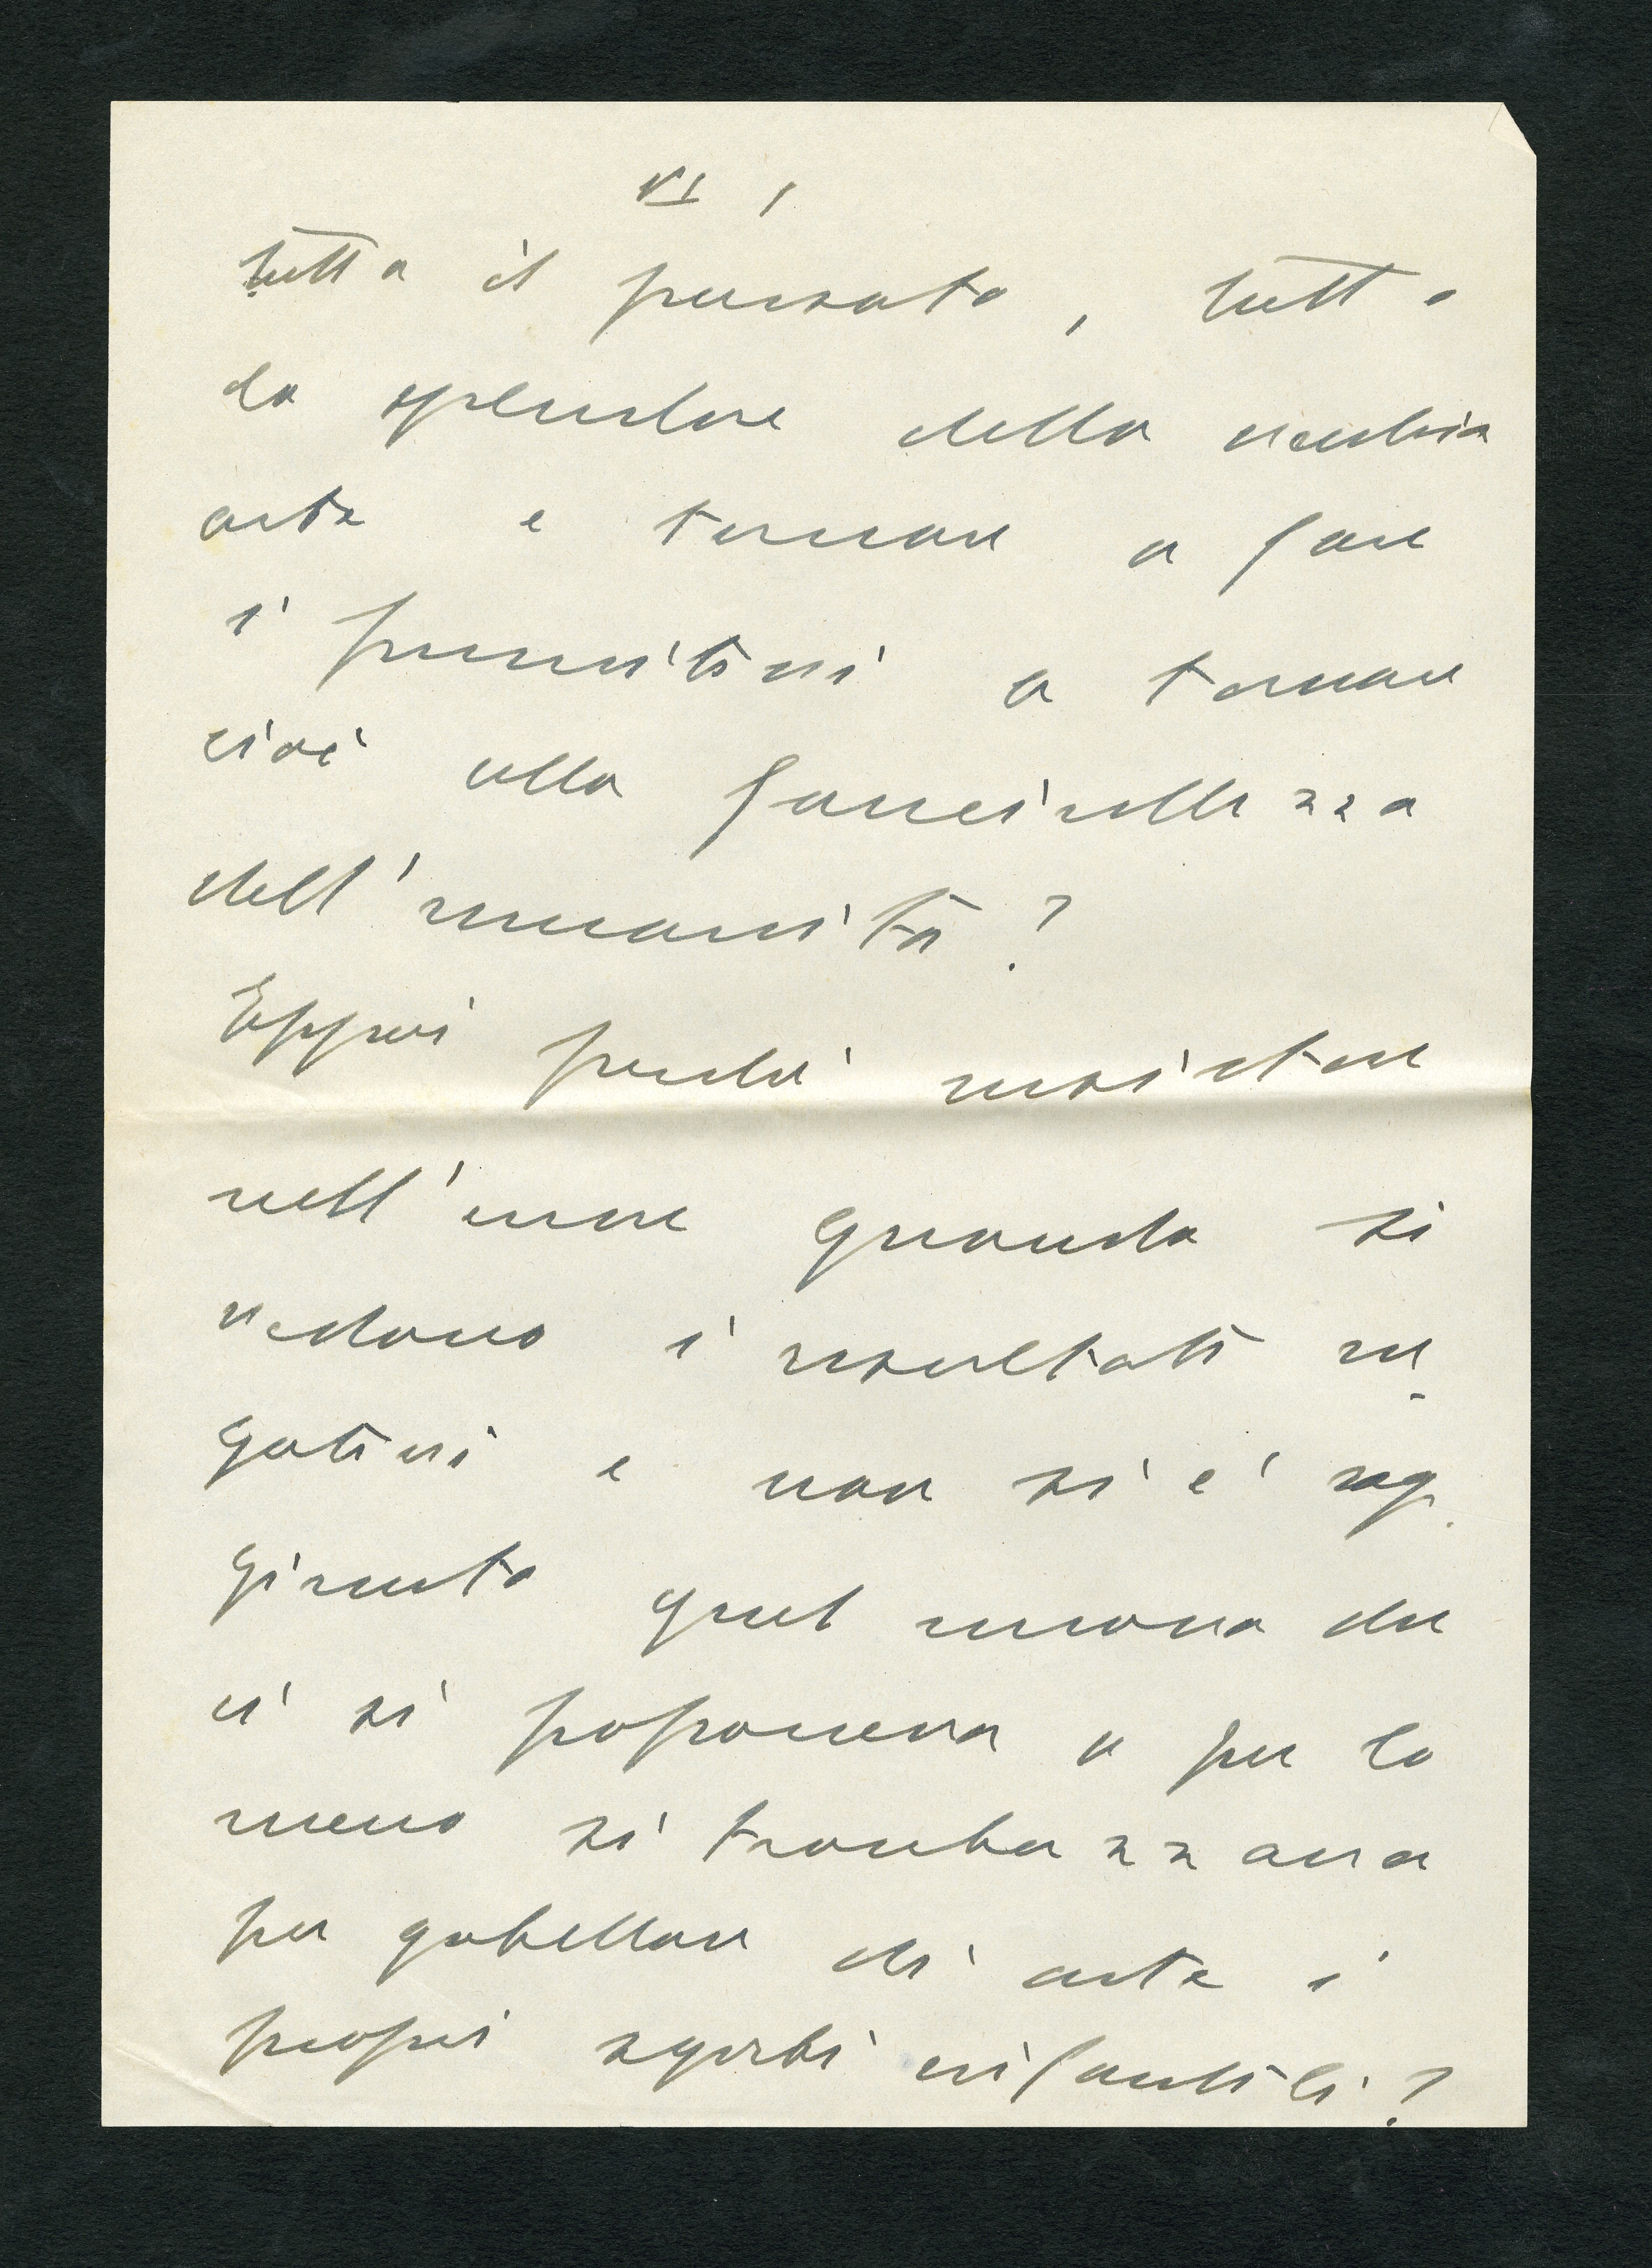 VI
tutto il passato, tutto
lo splendore della vecchia
arte e tornare a fare
i primitivi a tornare
cioè alla fanciullezza
dell'umanità?
Eppoi perché insistere
nell'errore quando si
vedono i risultati ne
gativi e non si è rag
giunto quel nuovo che
ci si proponeva o per lo
meno si strombazzava
per gabellare di arte i
propri sgorbi infantili?